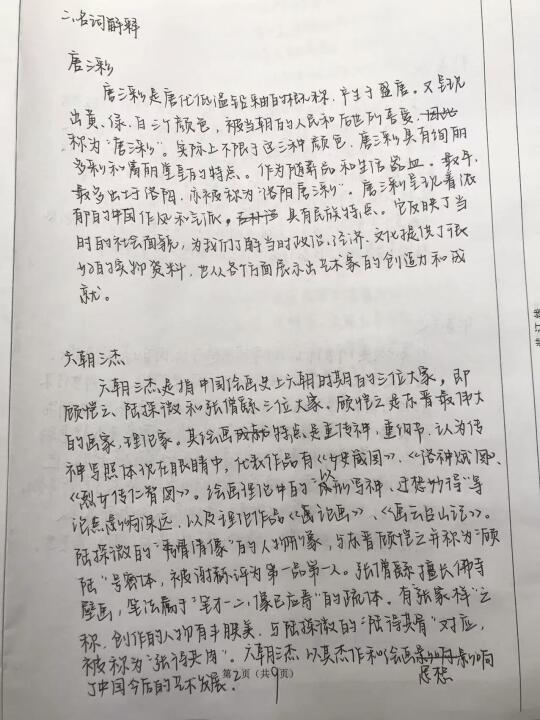 二、名词解释
唐三彩
唐三彩是唐代低温铅釉的概称,产生于盛唐。又呈现
出黄、绿、白三个颜色,被当朝的人民和后世所喜爱,
称为"唐三彩"。实际上不限于这三种颜色。唐三彩具有绚丽
多彩和富丽堂皇的特点。作为随葬品和生活器皿。最早、
最多出土于洛阳,亦被称为"洛阳唐三彩"。唐三彩呈现着浓
郁的中国作风和气派,具有民族特点。它反映了当
时的社会面貌,为我们了解当时政治、经济、文化提供了很
好的实物资料,也从各个方面展示出艺术家的创造力和成
就。
六朝三杰
六朝三杰是指中国绘画史上六朝时期的三位大家,即
顾恺之、陆探微和张僧繇三位大家。顾恺之是东晋最伟大
的画家,理论家。其绘画特点是重传神,重细节,认为传
神写照体现在眼睛中,代表作品有《女史箴图》、《洛神赋图》、
《烈女传仁智图》。绘画理论中的"以形写神、迁想妙得"等
论点影响深远,以及理论作品《画论》、《画云台山记》。
陆探微的"秀骨清像"的人物形象,与东晋顾恺之并称为"顾
陆"号密体,被谢赫评为第一品第一人。张僧繇擅长佛寺
壁画,笔法属于"笔才一二,像已应焉"的疏体。有张家样"之
称,创作的人物有丰腴美,与陆探微的"陆得其骨"对应,
被称为"张得其肉"。六朝三杰以其杰作和绘画思想影响
了中国今后的艺术发展。
第2页(共9页)